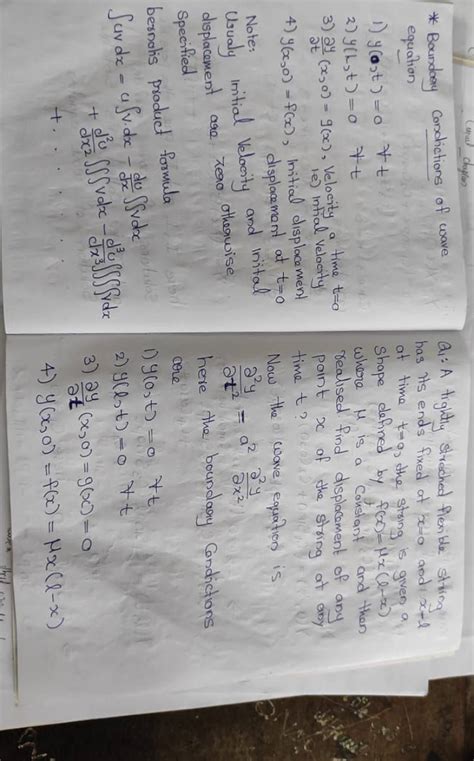 * Boundary Condictions of wave
equation
1) y(0,t)=0 ∀ t
2) y(L,t)=0 ∀ t
3) ∂y/∂t (x,0) = g(x), Velocity a time t=0
ie) Intial Velocity
4) y(x,0) = f(x), Initial displacement
displacement at t=0
Note:
Usually Initial Velocity and Initial
displacement are zero otherwise
specified
bernolis product formula
∫uvdx = u∫vdx - du/dx ∫∫vdx
+ d²u/dx² ∫∫∫vdx - d³u/dx³ ∫∫∫∫vdx
+ . . . . . .
Q1: A tightly streched flexible string
has its ends fixed at x=0 and x=l
at time t=0, the string is given a
shape defined by f(x)=μx(l-x)
where μ is a constant and then
realised find displacement of any
point x of the string at any
time t?
Now the wave equation is
∂²y/∂t² = a² ∂²y/∂x²
here the boundary Condictions
are
1) y(0,t)=0 ∀ t
2) y(l,t)=0 ∀ t
3) ∂y/∂t (x,0)=g(x)=0
4) y(x,0)=f(x)=μx(l-x)